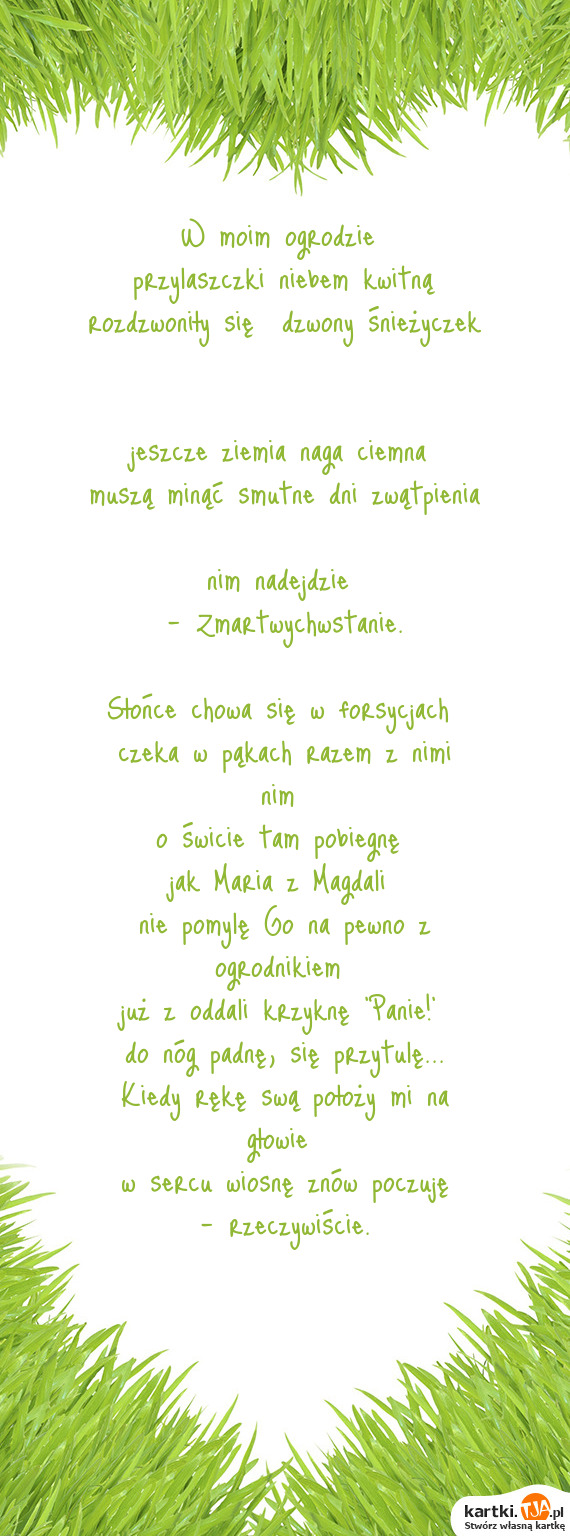 W moim ogrodzie
przylaszczki niebem kwitną
rozdzwoniły się dzwony śnieżyczek
jeszcze ziemia naga ciemna
muszą minąć smutne dni zwątpienia
nim nadejdzie
- Zmartwychwstanie.
Słońce chowa się w forsycjach
czeka w pąkach razem z nimi
nim
o świcie tam pobiegnę
jak Maria z Magdali
nie pomylę Go na pewno z
ogrodnikiem
już z oddali krzyknę "Panie!"
do nóg padnę, się przytulę...
Kiedy rękę swą położy mi na
głowie
w sercu wiosnę znów poczuję
- rzeczywiście.
kartki.TJA.pl
Stwórz własną kartkę